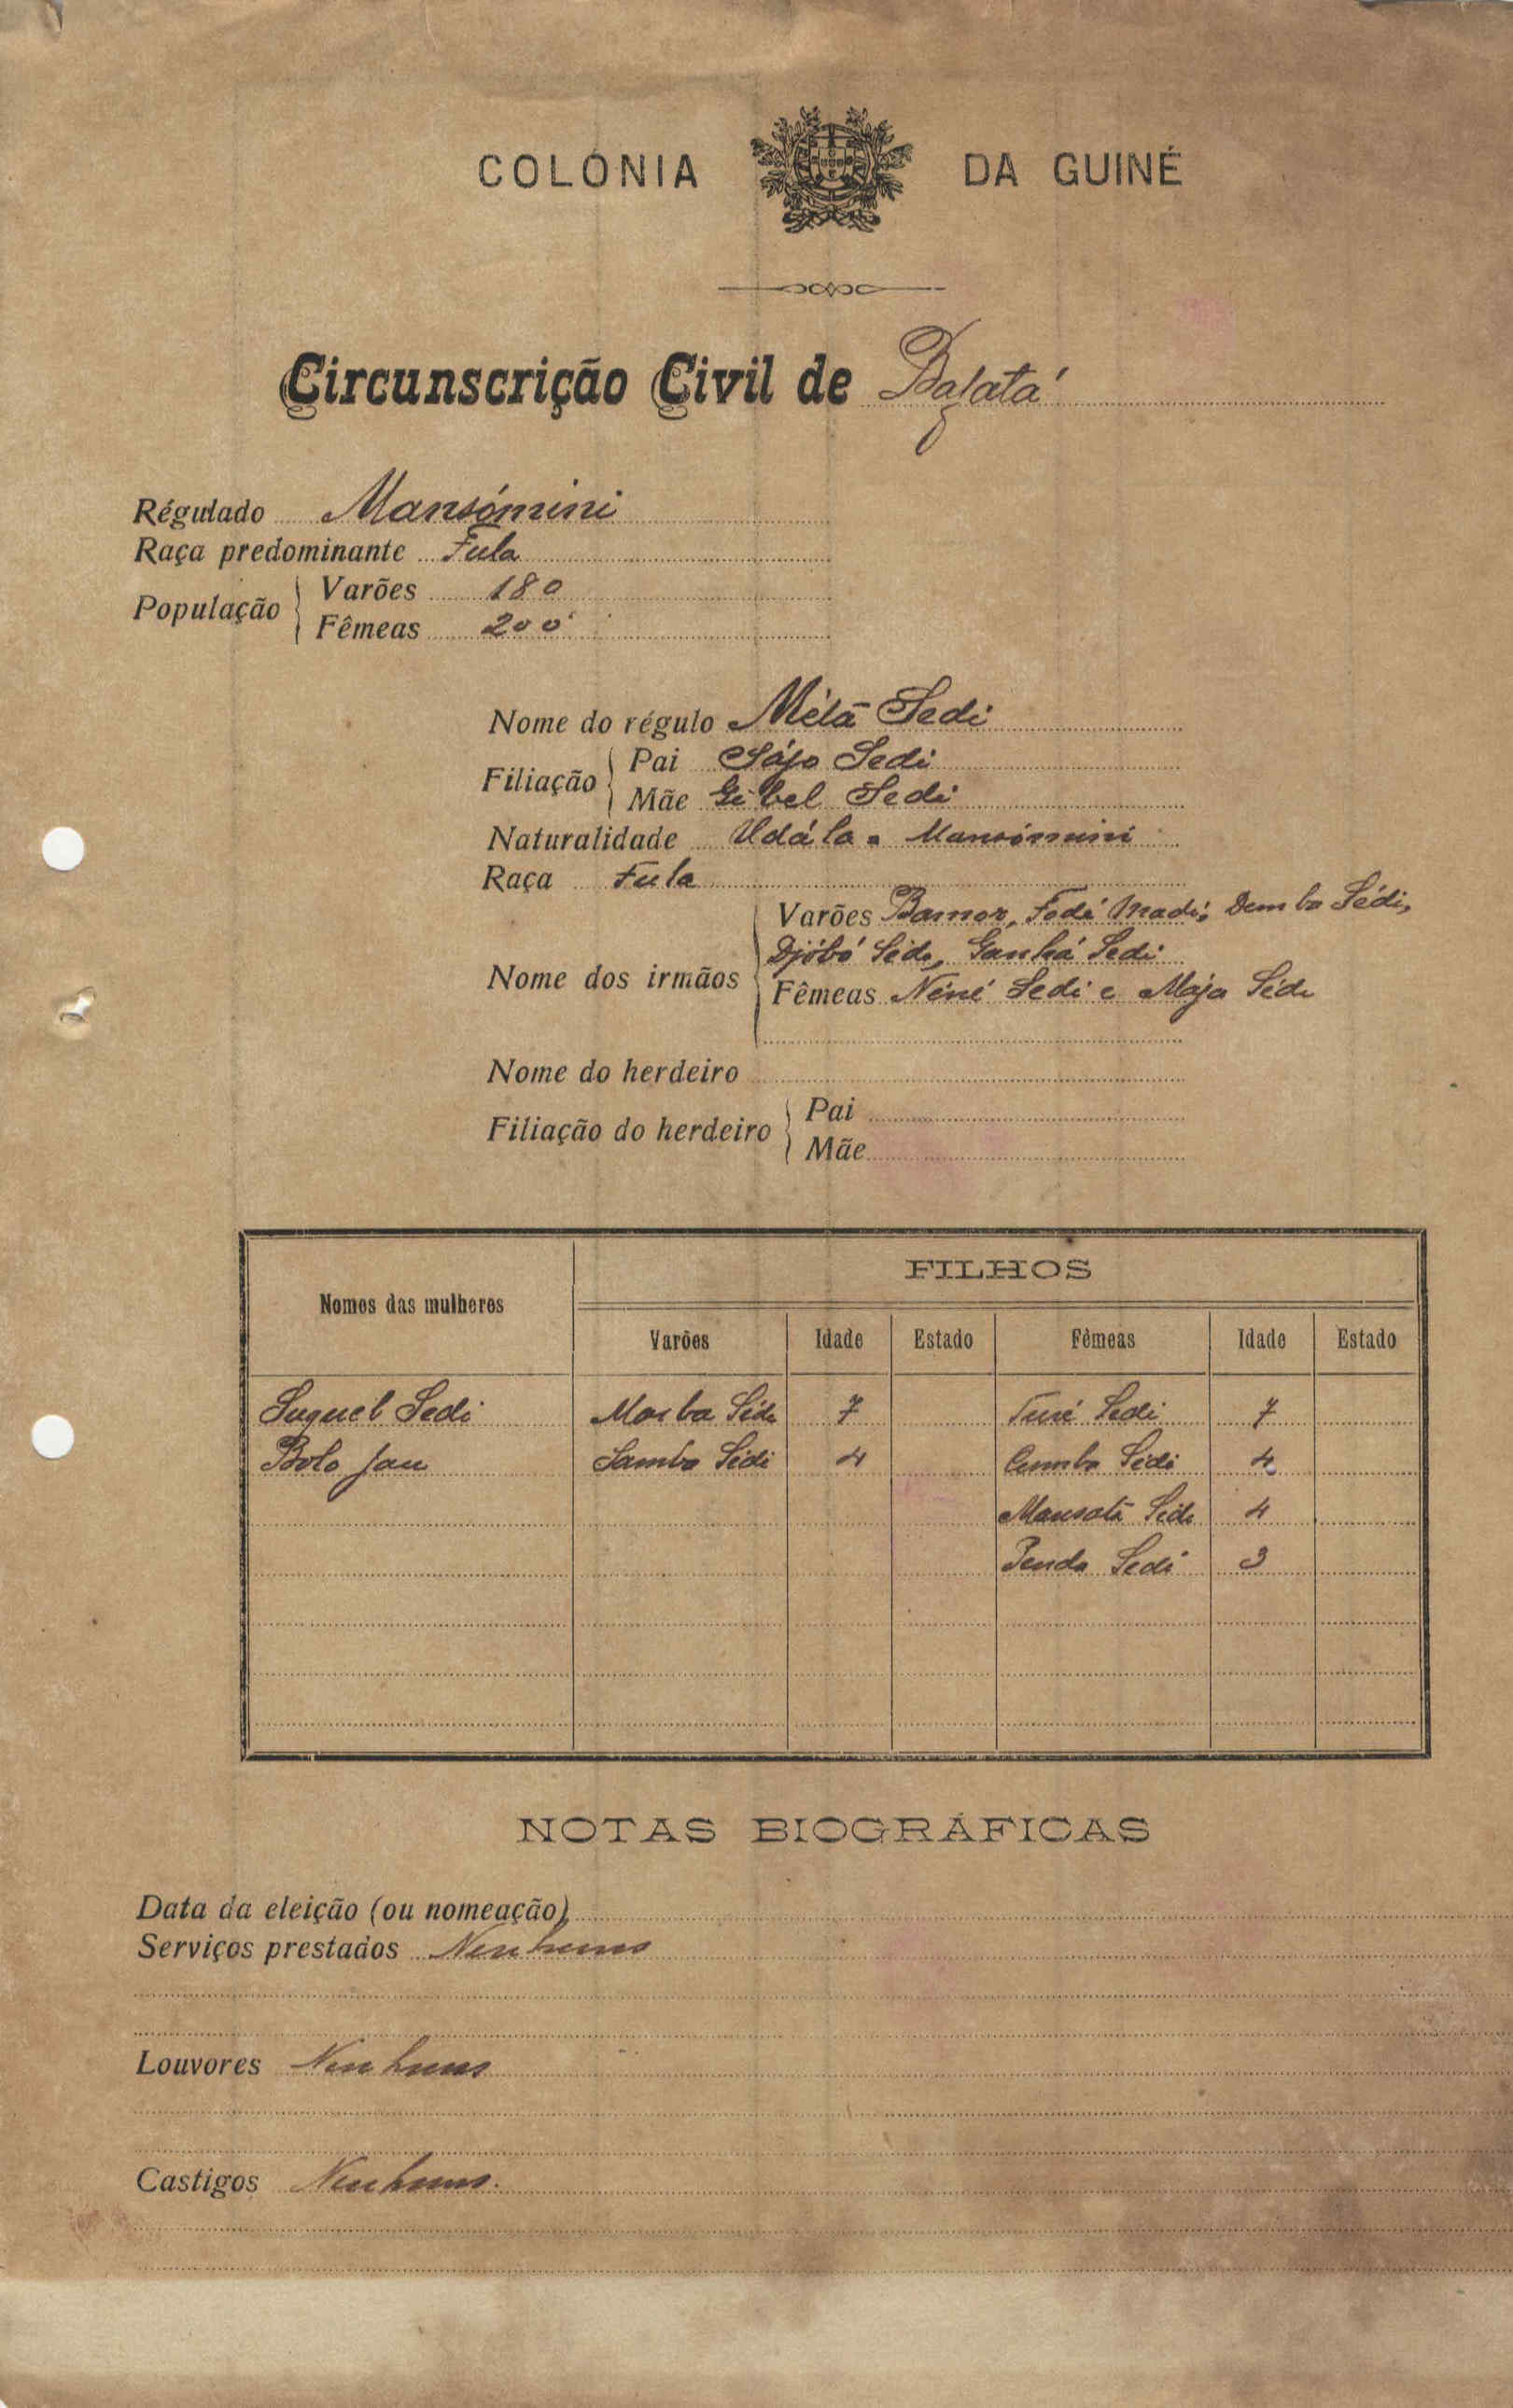 COLÓNIA DA GUINÉ
Circunscrição Civil de Bafatá
Régulado Mansómini
Raça predominante Fula
População
Varões 180
Fêmeas 200
Nome do régulo Métã Sedi
Filiação
Pai Sájo Sedi
Mãe Gibel Sedi
Naturalidade Udála - Mansómini
Raça Fula
Nome dos irmãos
Varões Bamor, Fodé Madi, Demba Sédi,
Djóbó Sédi, Ganhá Sedi
Fêmeas Néné Sedi e Maja Sédi
Nome do herdeiro
Filiação do herdeiro
Pai
Mãe
Nomes das mulheres FILHOS
Varões Idade Estado Fêmeas Idade Estado
Suquel Sedi Morba Sédi 7 Turé Sedi 7
Bolo Jau Samba Sédi 4 Cumba Sédi 4
Mansatá Sédi 4
Penda Sedi 3
NOTAS BIOGRÁFICAS
Data da eleição (ou nomeação)
Serviços prestados Nenhuns
Louvores Nenhuns
Castigos Nenhuns.